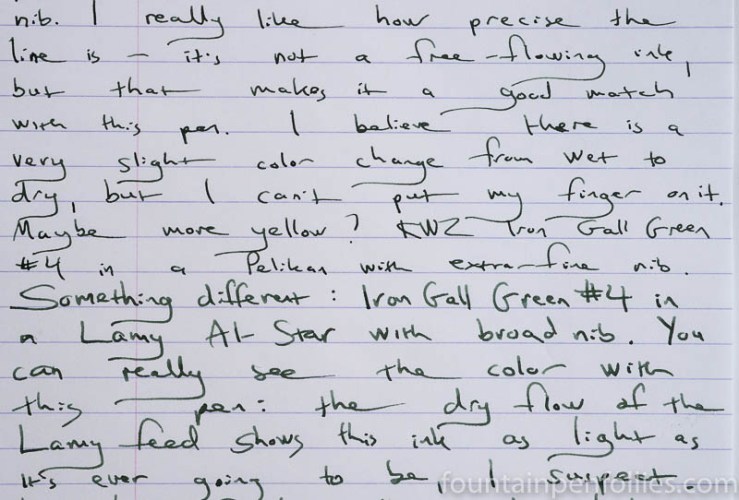 nib. I really like how precise the
line is – it's not a free-flowing ink,
but that makes it a good match
with this pen. I believe there is a
very slight color change from wet to
dry, but I can't put my finger on it.
Maybe more yellow? KWZ Iron Gall Green
#4 in a Pelikan with extra-fine nib.
Something different: Iron Gall Green #4 in
a Lamy Al-Star with broad nib. You
can really see the color with
this pen: the dry flow of the
Lamy feed shows this ink as light as
it's ever going to be, I suspect.
fountainpenfollies.com